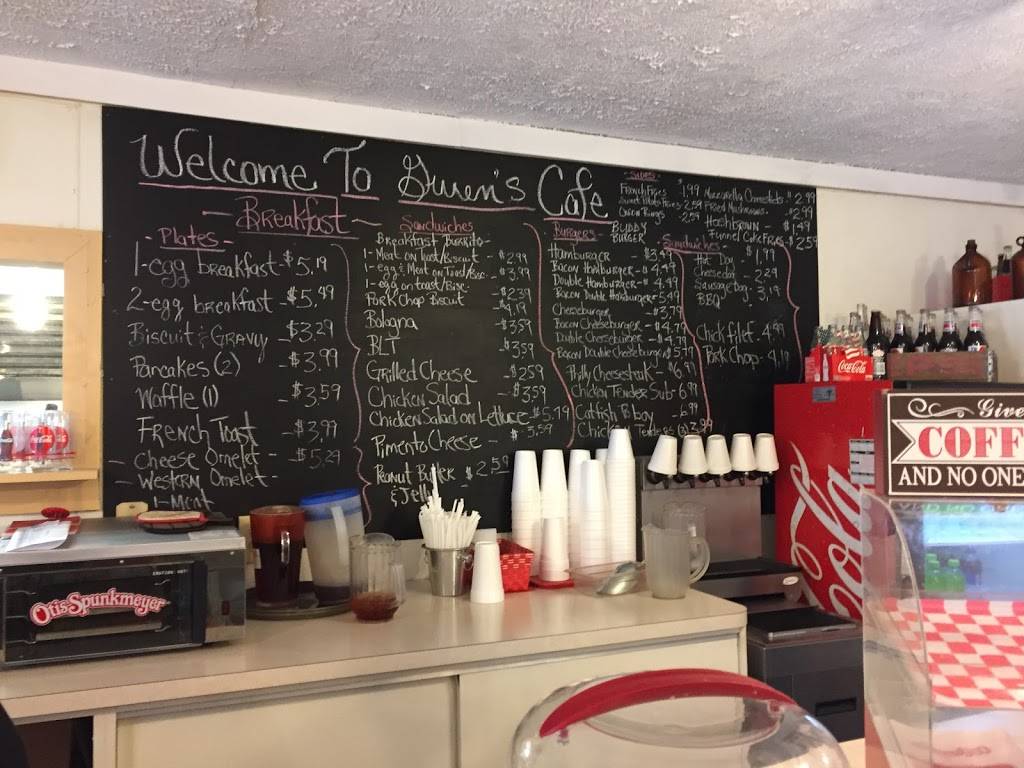 Welcome To Gwen's Cafe
Breakfast
- Plates -
1-egg breakfast - $5.19
2-egg breakfast - $5.49
Biscuit & Gravy - $3.29
Pancakes (2) - $3.99
Waffle (1) - $3.59
French Toast - $3.99
- Cheese Omelet - - $5.29
- Western Omelet -
1-Meat
Sandwiches
Breakfast Burrito -
1-Meat on Toast/Biscuit - $2.99
1-egg & Meat on Toast/Bisc. - $3.99
1-egg on toast/Bisc. - $2.39
Pork Chop Biscuit - $4.19
Bologna - $3.59
BLT - $3.59
Grilled Cheese - $2.59
Chicken Salad - $3.59
Chicken Salad on Lettuce - $5.19
Pimento Cheese - $3.59
Peanut Butter $2.59
& Jelly
Burgers -
BUDDY
BURGER
Hamburger - $3.49
Bacon Hamburger - $4.49
Double Hamburger - $4.49
Bacon Double Hamburger - 5.49
Cheeseburger - $3.79
Bacon Cheeseburger - $4.79
Double Cheeseburger - $4.79
Bacon Double Cheeseburger $5.79
Philly Cheesesteak - $6.99
Chicken Tender Sub - 6.99
Catfish Poboy - 6.99
Chicken Tenders (3) 3.99
- Sides -
French Fries - $1.99
Sweet Potato Fries - 2.59
Onion Rings - 2.59
Mozzarella Cheesesticks - $2.99
Fried Mushrooms - $2.99
Hashbrown - $1.49
Funnel Cake Fries - $2.59
Sandwiches -
Hot Dog - $1.99
Cheesedog - 2.29
Sausage Dog - 3.19
BBQ -
Chick filet - 4.99
Pork Chop - 4.19
Otis Spunkmeyer
Coca-Cola
Coca-Cola
Give
COFF
AND NO ONE